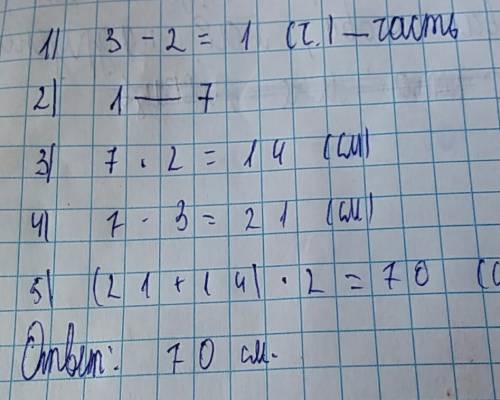 1) 3 - 2 = 1 (ч.) - часть
2) 1 — 7
3) 7 · 2 = 14 (см)
4) 7 · 3 = 21 (см)
5) (21 + 14) · 2 = 70 (с
Ответ: 70 см.